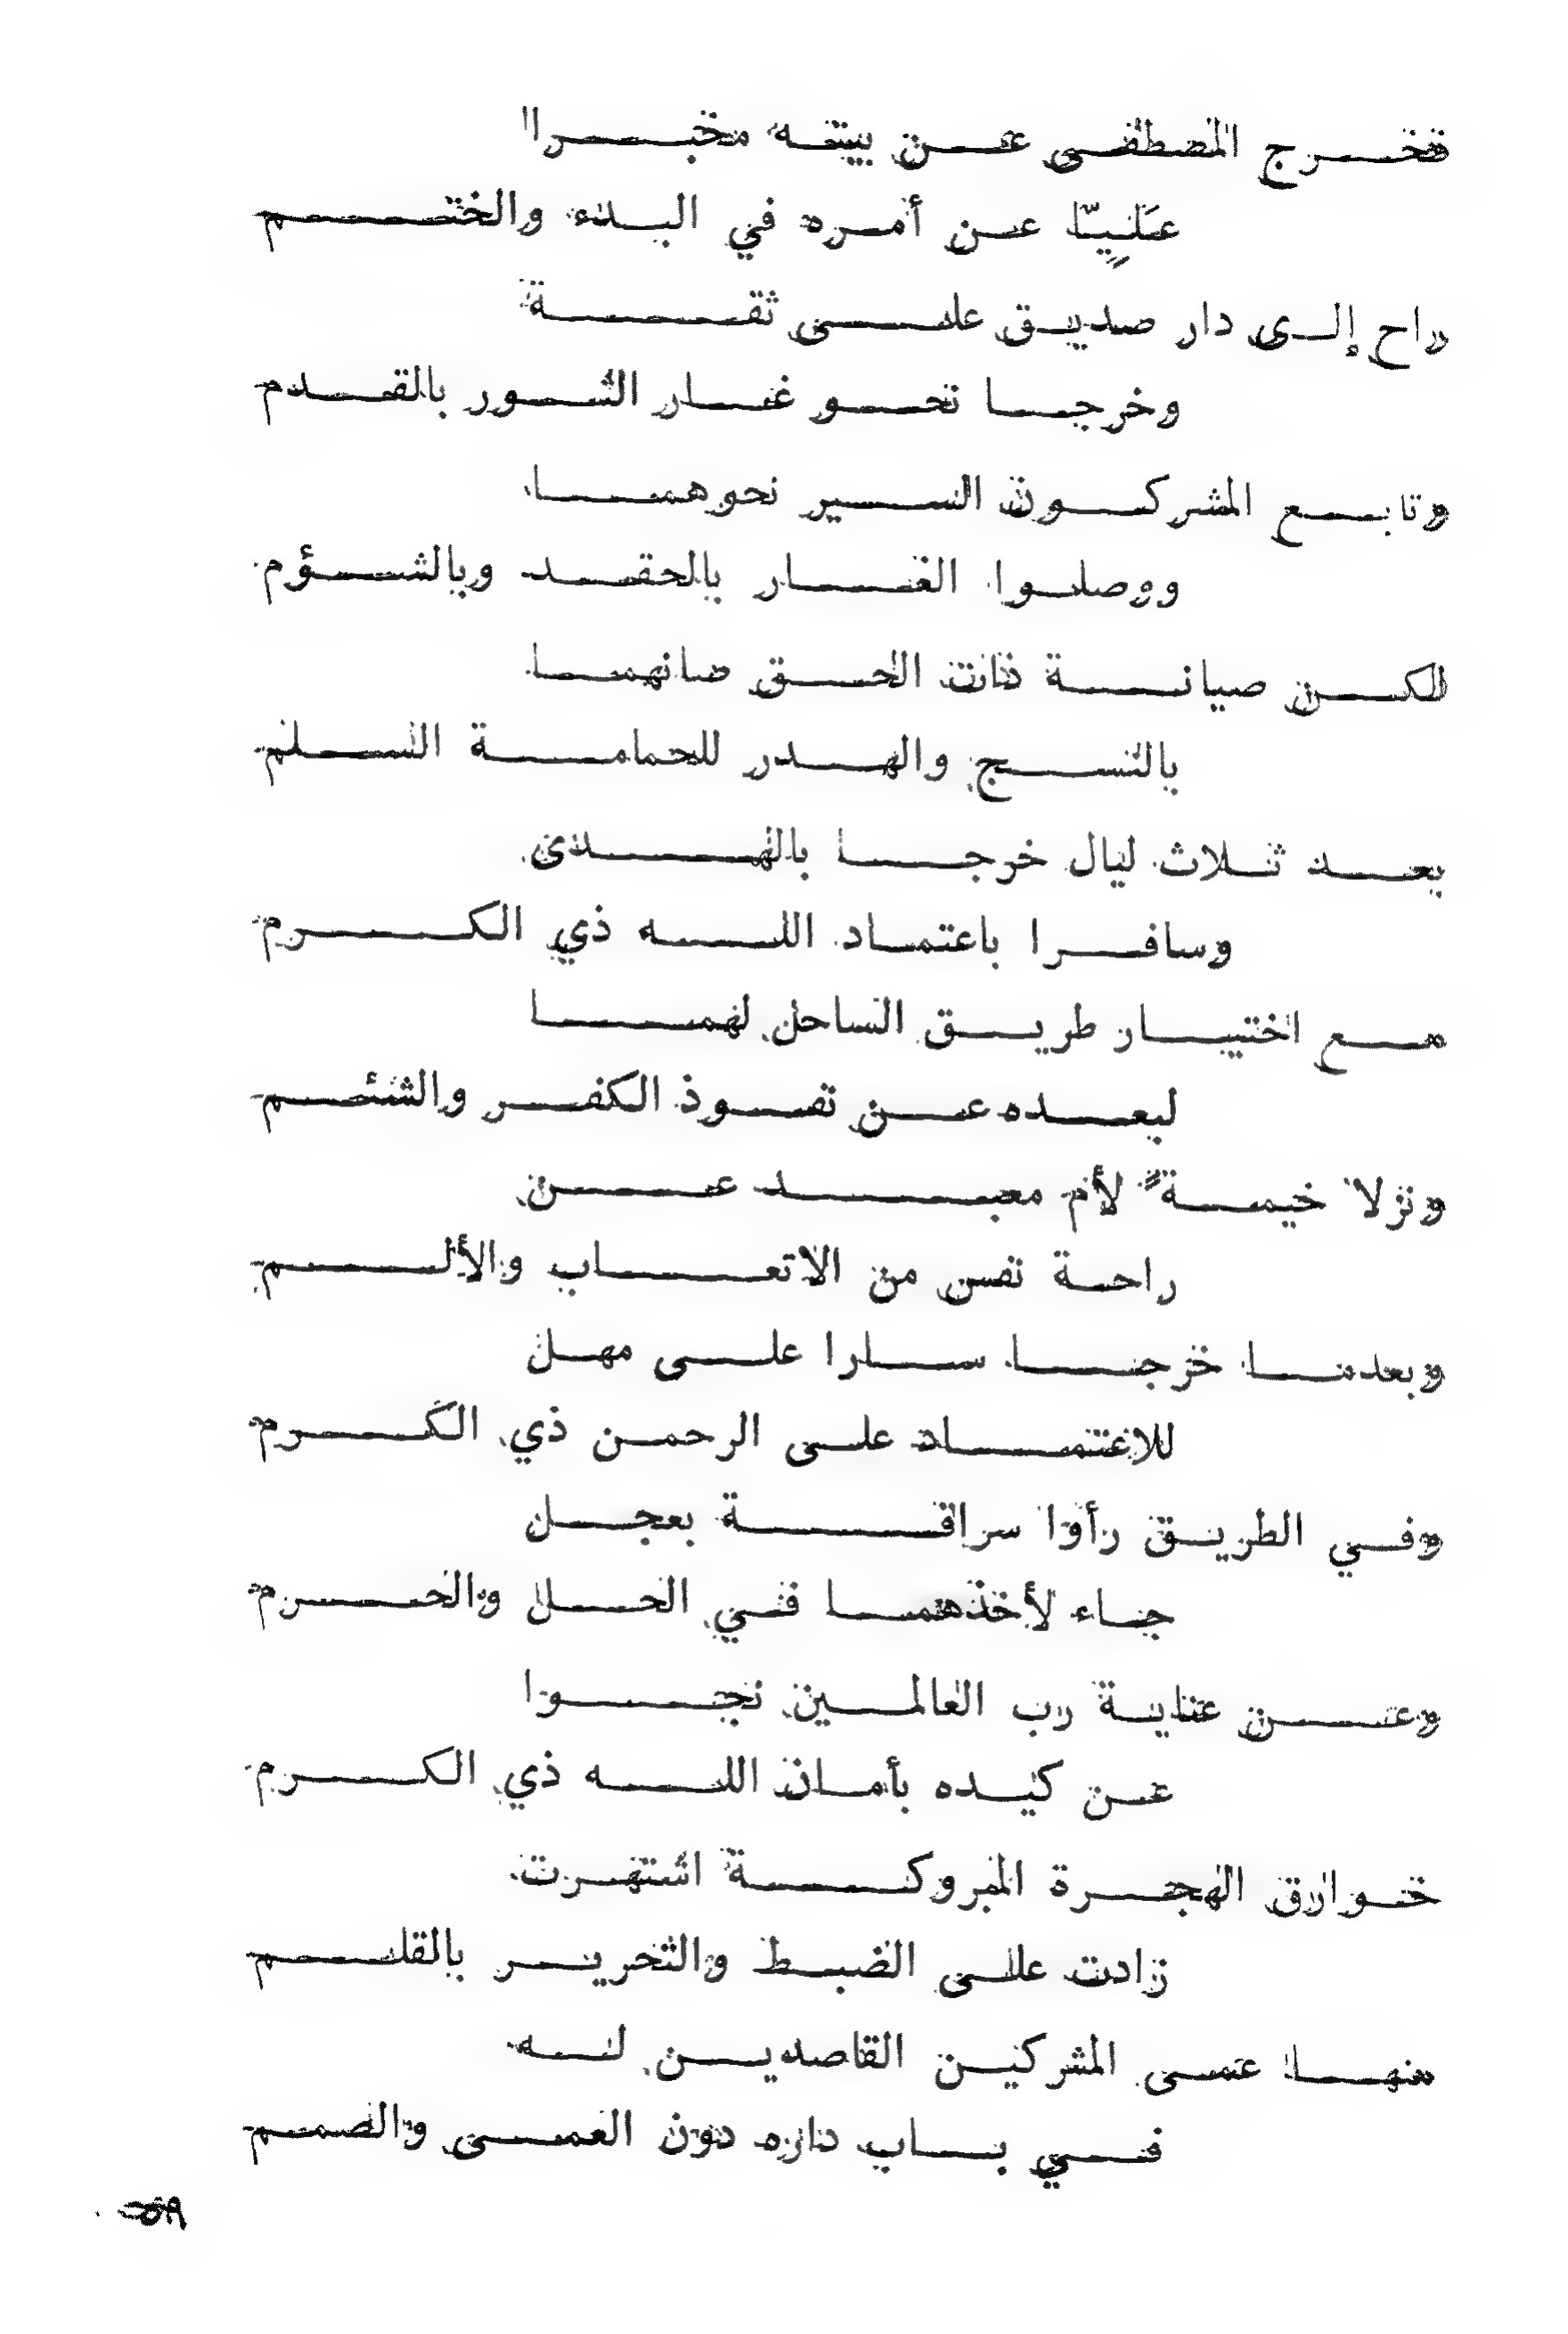 فخرج المصطفى عن بيته مخبرا
عَلِيّا عن أمره في البدء والختم
راح إلى دار صديق على ثقة
وخرجا نحو غار الثور بالقدم
وتابع المشركون السير نحوهما
ووصلوا الغار بالحقد وبالشؤم
لكن صيانة ذات الحق صانهما
بالنسج والهدر للحمامة السلم
بعد ثلاث ليال خرجا بالهدى
وسافرا باعتماد الله ذي الكرم
مع اختيار طريق الساحل لهما
لبعده عن نفوذ الكفر والشئم
ونزلا خيمة لأم معبد عن
راحة نفس من الاتعاب والألم
وبعدما خرجا سارا على مهل
للاعتماد على الرحمن ذي الكرم
وفي الطريق رأوا سراقة بعجل
جاء لأخذهما في الحل والحرم
وعن عناية رب العالمين نجوا
عن كيده بأمان الله ذي الكرم
خوارق الهجرة المبروكة اشتهرت
زادت على الضبط والتحرير بالقلم
منها عمى المشركين القاصدين له
في باب داره دون العمى والصمم